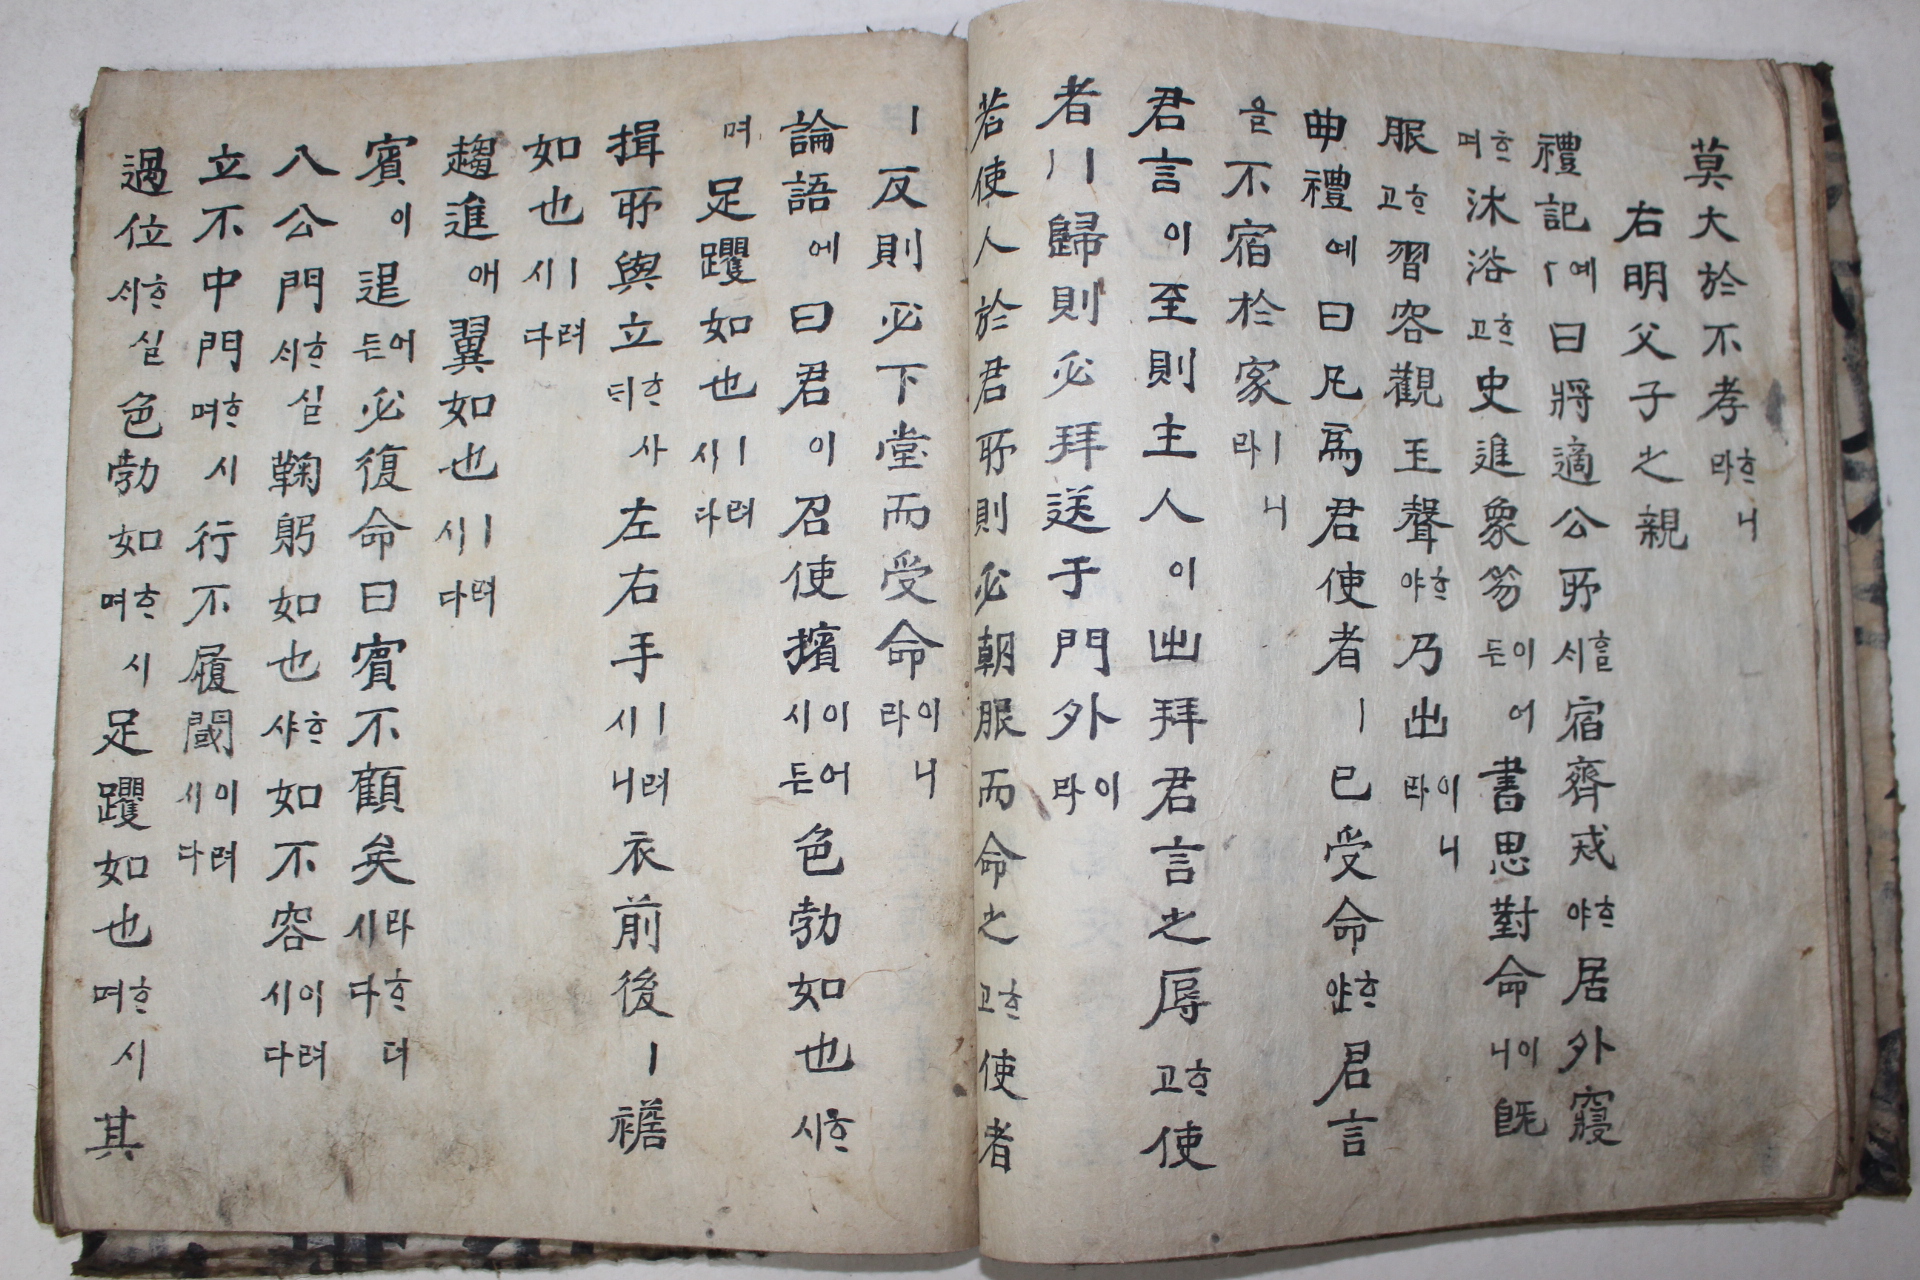 莫大於不孝ᄒᆞ니라
右明父子之親
禮記예曰將適公所ᄒᆞᆯᄉᆡ宿齊戒ᄒᆞ야居外寢
ᄒᆞ며沐浴ᄒᆞ고史進象笏이어든書思對命이니旣
服ᄒᆞ고習容觀玉聲ᄒᆞ야乃出이니라
曲禮예曰凡爲君使者ㅣ已受命ᄒᆞ얀君言
을不宿於家ㅣ니라
君言이至則主人이出拜君言之辱ᄒᆞ고使
者ㅣㅣ歸則必拜送于門外이라
若使人於君所則必朝服而命之ᄒᆞ고使者
ㅣ反則必下堂而受命이니라
論語에曰君이召使擯이어시든色勃如也ᄒᆞ시
며足躩如也ㅣ러시다
揖所與立ᄒᆞ사ᄃᆡ左右手ㅣ러시니衣前後ㅣ襜
如也ㅣ러시다
趨進애翼如也ㅣ러시다
賓이退어든必復命曰賓不顧矣라ᄒᆞ더시다
入公門ᄒᆞ실ᄉᆡ鞠躬如也ᄒᆞ샤如不容이러시다
立不中門ᄒᆞ시며行不履閾이러시다
過位ᄒᆞ실ᄉᆡ色勃如ᄒᆞ시며足躩如也ᄒᆞ시며其